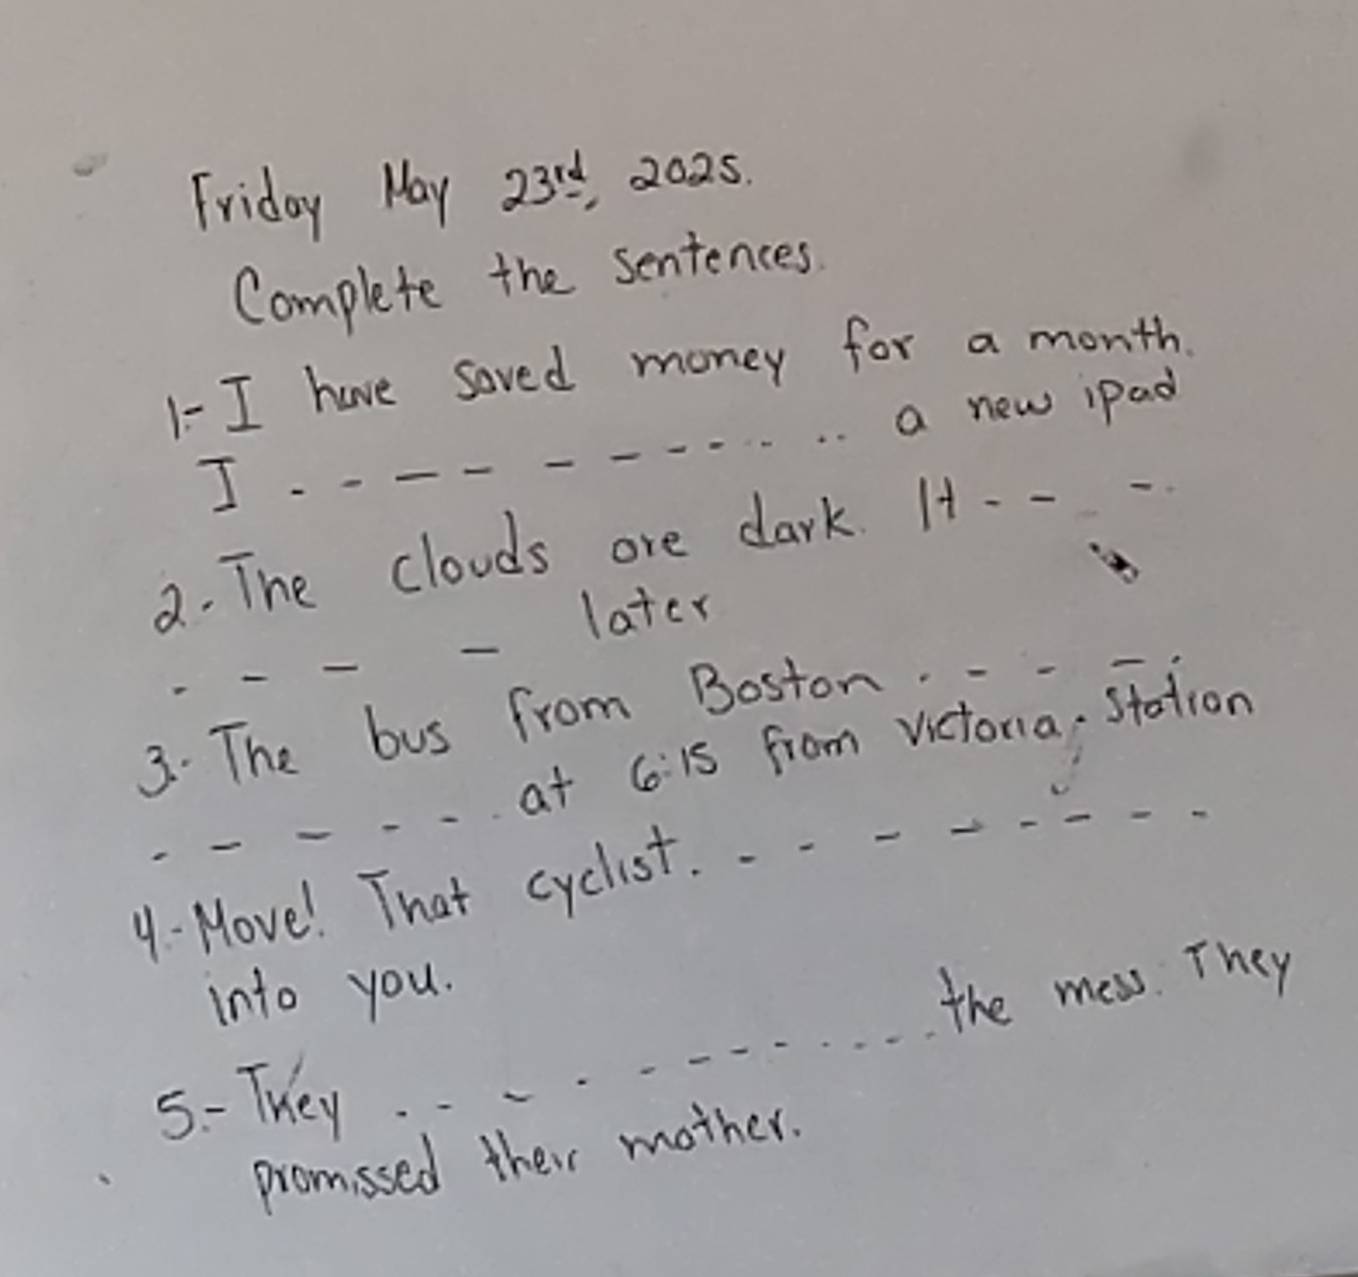 Friday May 23rd, 2025.
Complete the sentences.
1.- I have saved money for a month.
I - - - - - - - - - - - a new ipad
2.- The clouds are dark. It - - - -
- - - - later
3.- The bus from Boston - - - - -
- - - - - - at 6:15 from Victoria Station
4.- Move! That cyclist. - - - - - - - - -
into you.
5.- They - - - - - - - - - - - - the mess. They
promissed their mother.